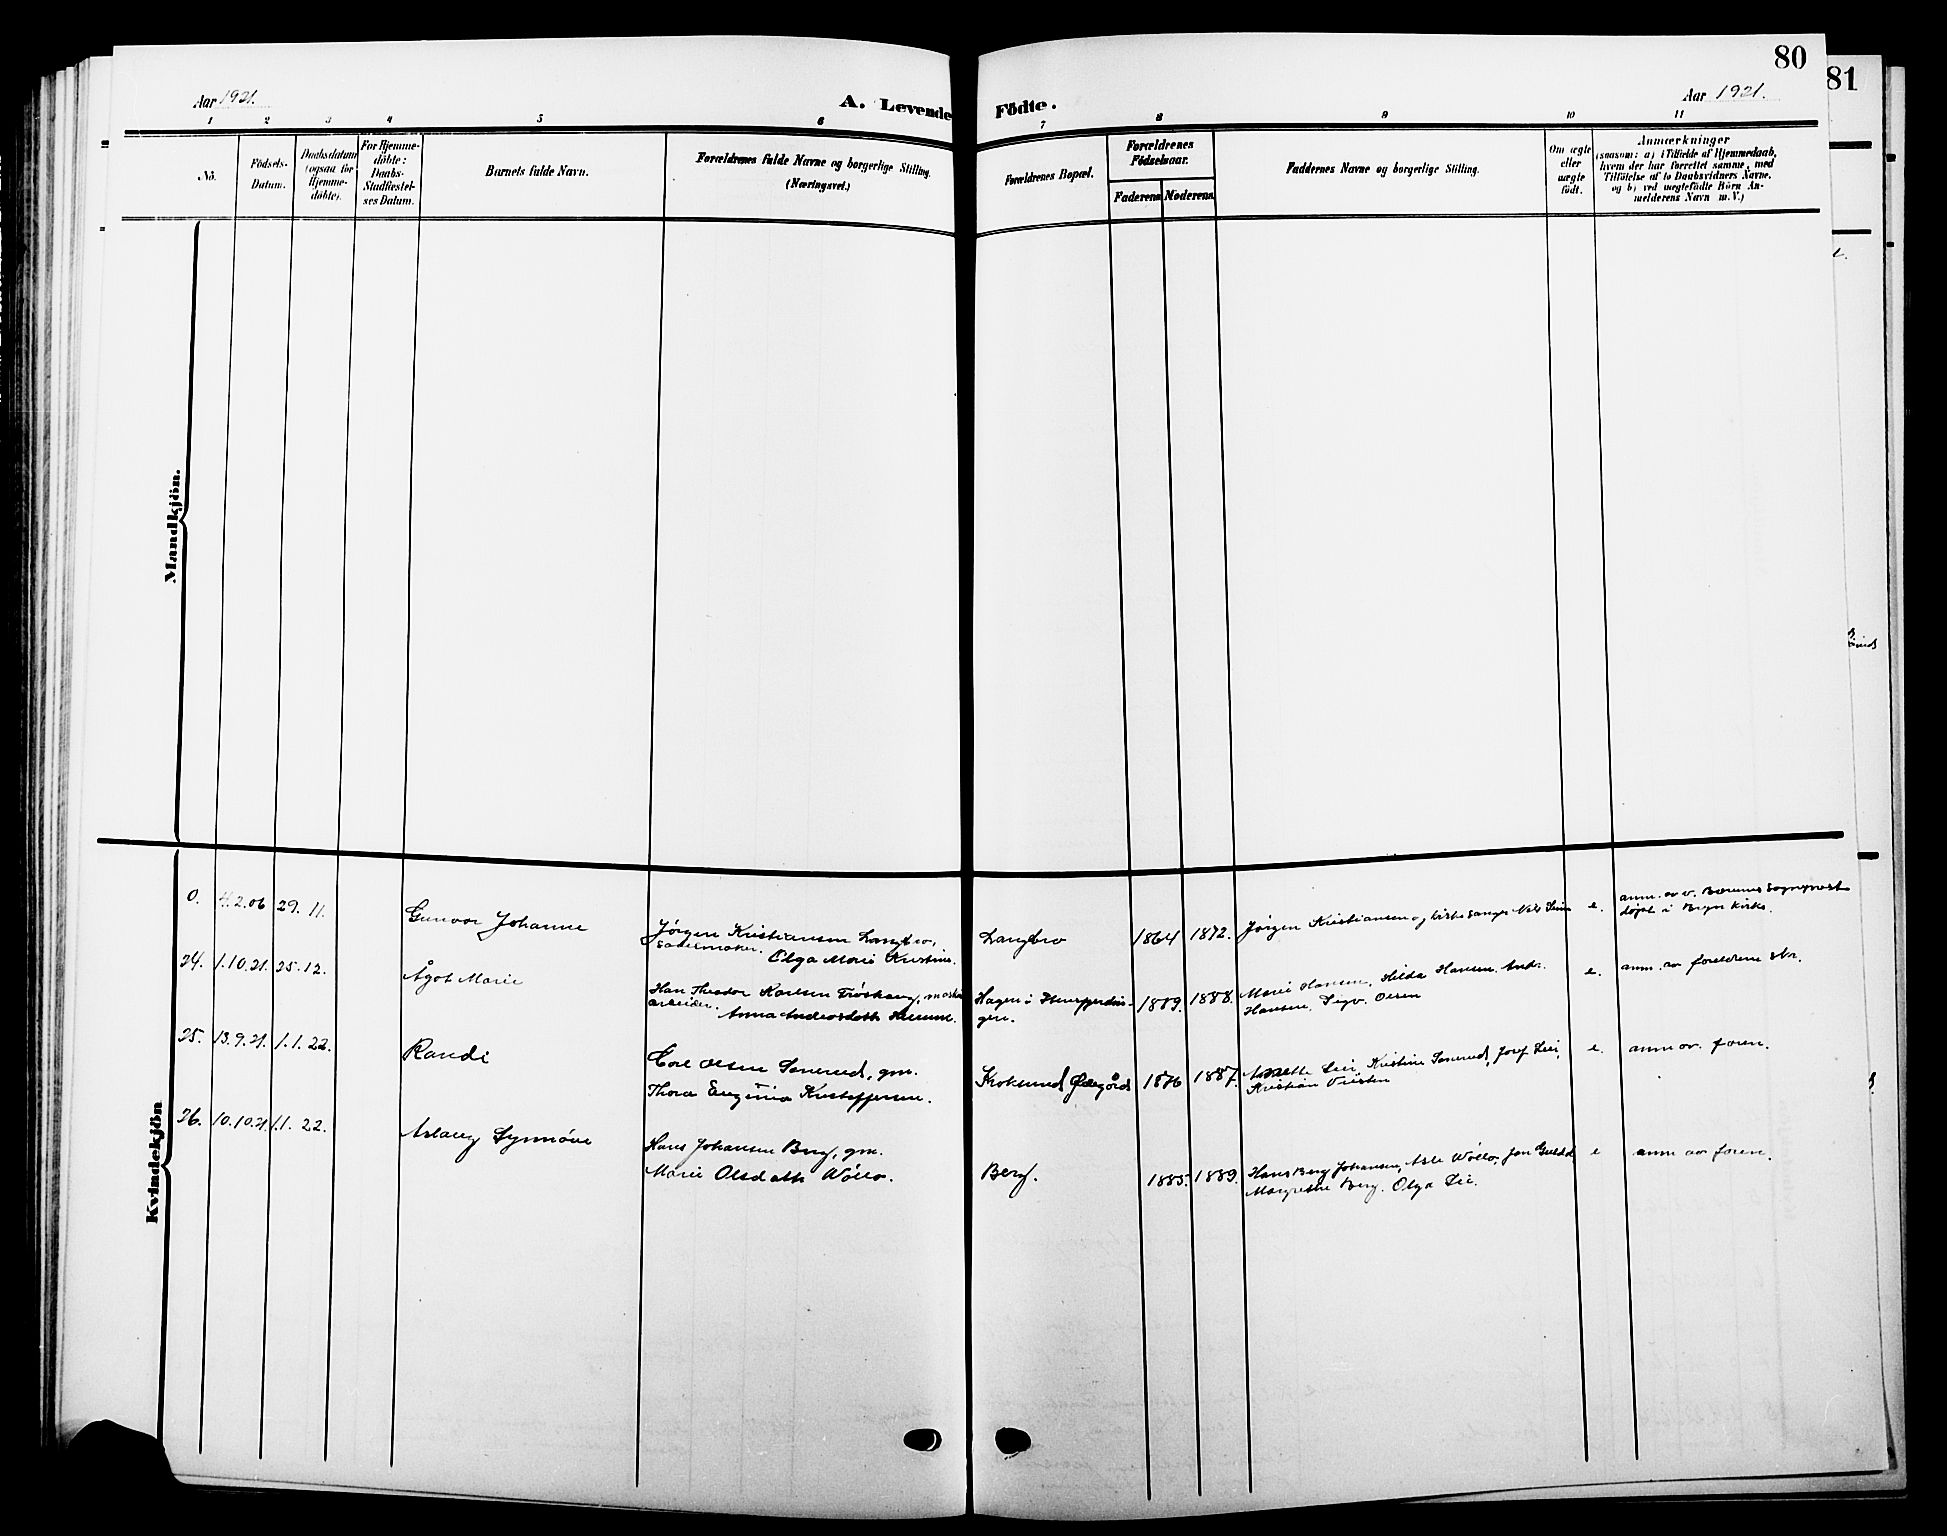 80
81
Aar 1921.
A. Levende Födte.
Aar 1921.
1 2 3 4 5 6 7 8 9 10 11
No.
Födsels-Datum.
Daabsdatum (ogsaa for Hjemme-döbte).
For Hjemme-döbte: Daabs-Stadfæstel-ses Datum.
Barnets fulde Navn.
Forældrenes fulde Navne og borgerlige Stilling. (Næringsvei.)
Forældrenes Bopæl.
Forældrenes Födselsaar.
Faderens Moderens
Faddernes Navne og borgerlige Stilling.
Om ægte eller uægte födt.
Anmærkninger
(saasom: a) i Tilfælde af Hjemmedaab,
hvem der har forrettet samme, med
Tilföielse af to Daabsvidners Navne,
og b) ved uægtefödte Börn An-
melderens Navn m. V.)
Mandkjön.
Kvindekjön
0. 4.2.06 29.11. Gunvor Johanne
Jørgen Kristiansen Langbro,
sadelmaker. Olga Marie Kristine.
Langbro 1864 1872. Jørgen Kristiansen og kirkesanger Nils e.
anm. av v. Bærums Sogneprest
døpt i Bryn Kirke.
24. 1.10.21. 25.12. Ågot Marie
Han Theodor Karlsen
arbeider. Anna Andersdatt
Hagen i 1889. 1888. Marie Hansen, Hilda Hansen, Andr.
Hansen, Sigv. Olsen e. anm. av foreldrene
25. 13.9.21. 1.1.22. Randi
Olsen gm.
Thora Eugenia Kristoffersen.
Kroksund Ødegård 1876 1887. Lie, Kristine Josef Lie,
Kristian e. anm av. foren.
26. 10.10.21. 1.1.22. Aslaug Synnøve
Hans Johansen Berg, gm.
Marie Olsdatt Wøllo.
Berg. 1885. 1889. Hans Berg Johansen, Asle Wøllo, Jon
Margrethe Berg. Olga Lie. e anm av foren.